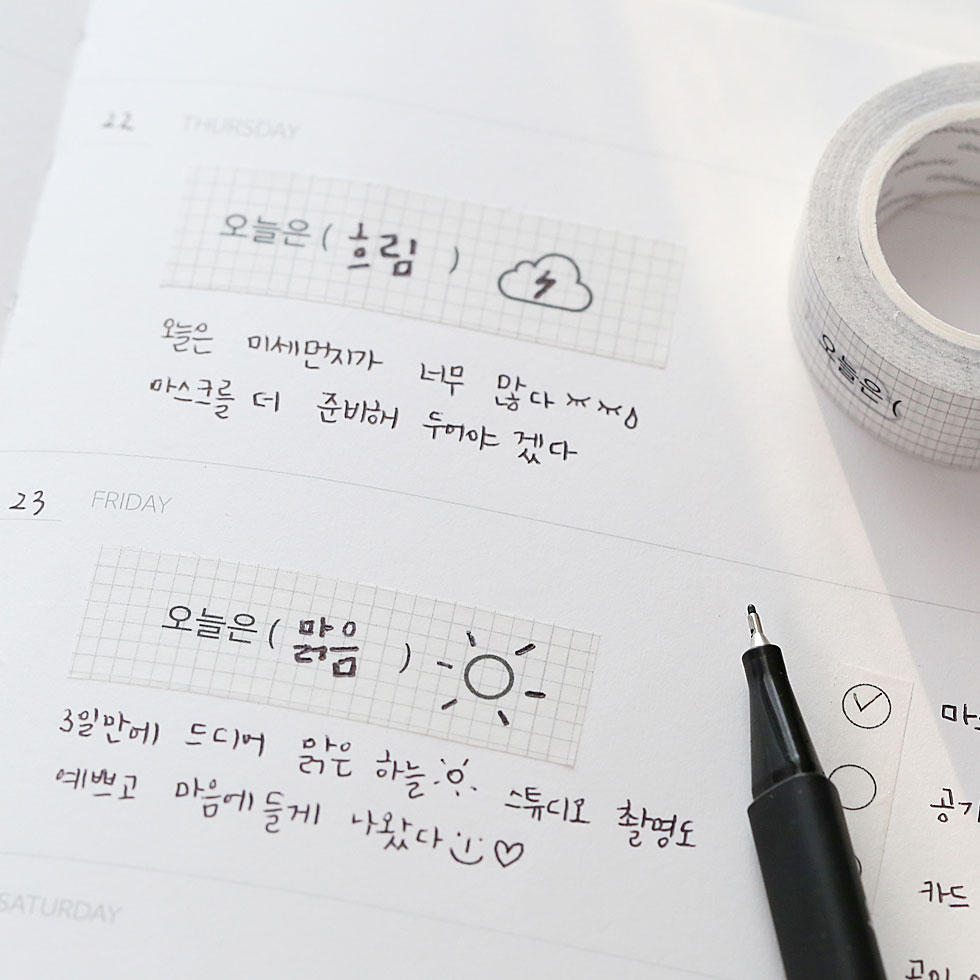 22 THURSDAY
오늘은 ( 흐림 )
오늘은 미세먼지가 너무 많다ㅉㅉ
마스크를 더 준비해 두어야 겠다
23 FRIDAY
오늘은 ( 맑음 )
3일만에 드디어 맑은 하늘 스튜디오 촬영도
예쁘고 마음에들게 나왔다
SATURDAY
오늘은 (
공기
카드